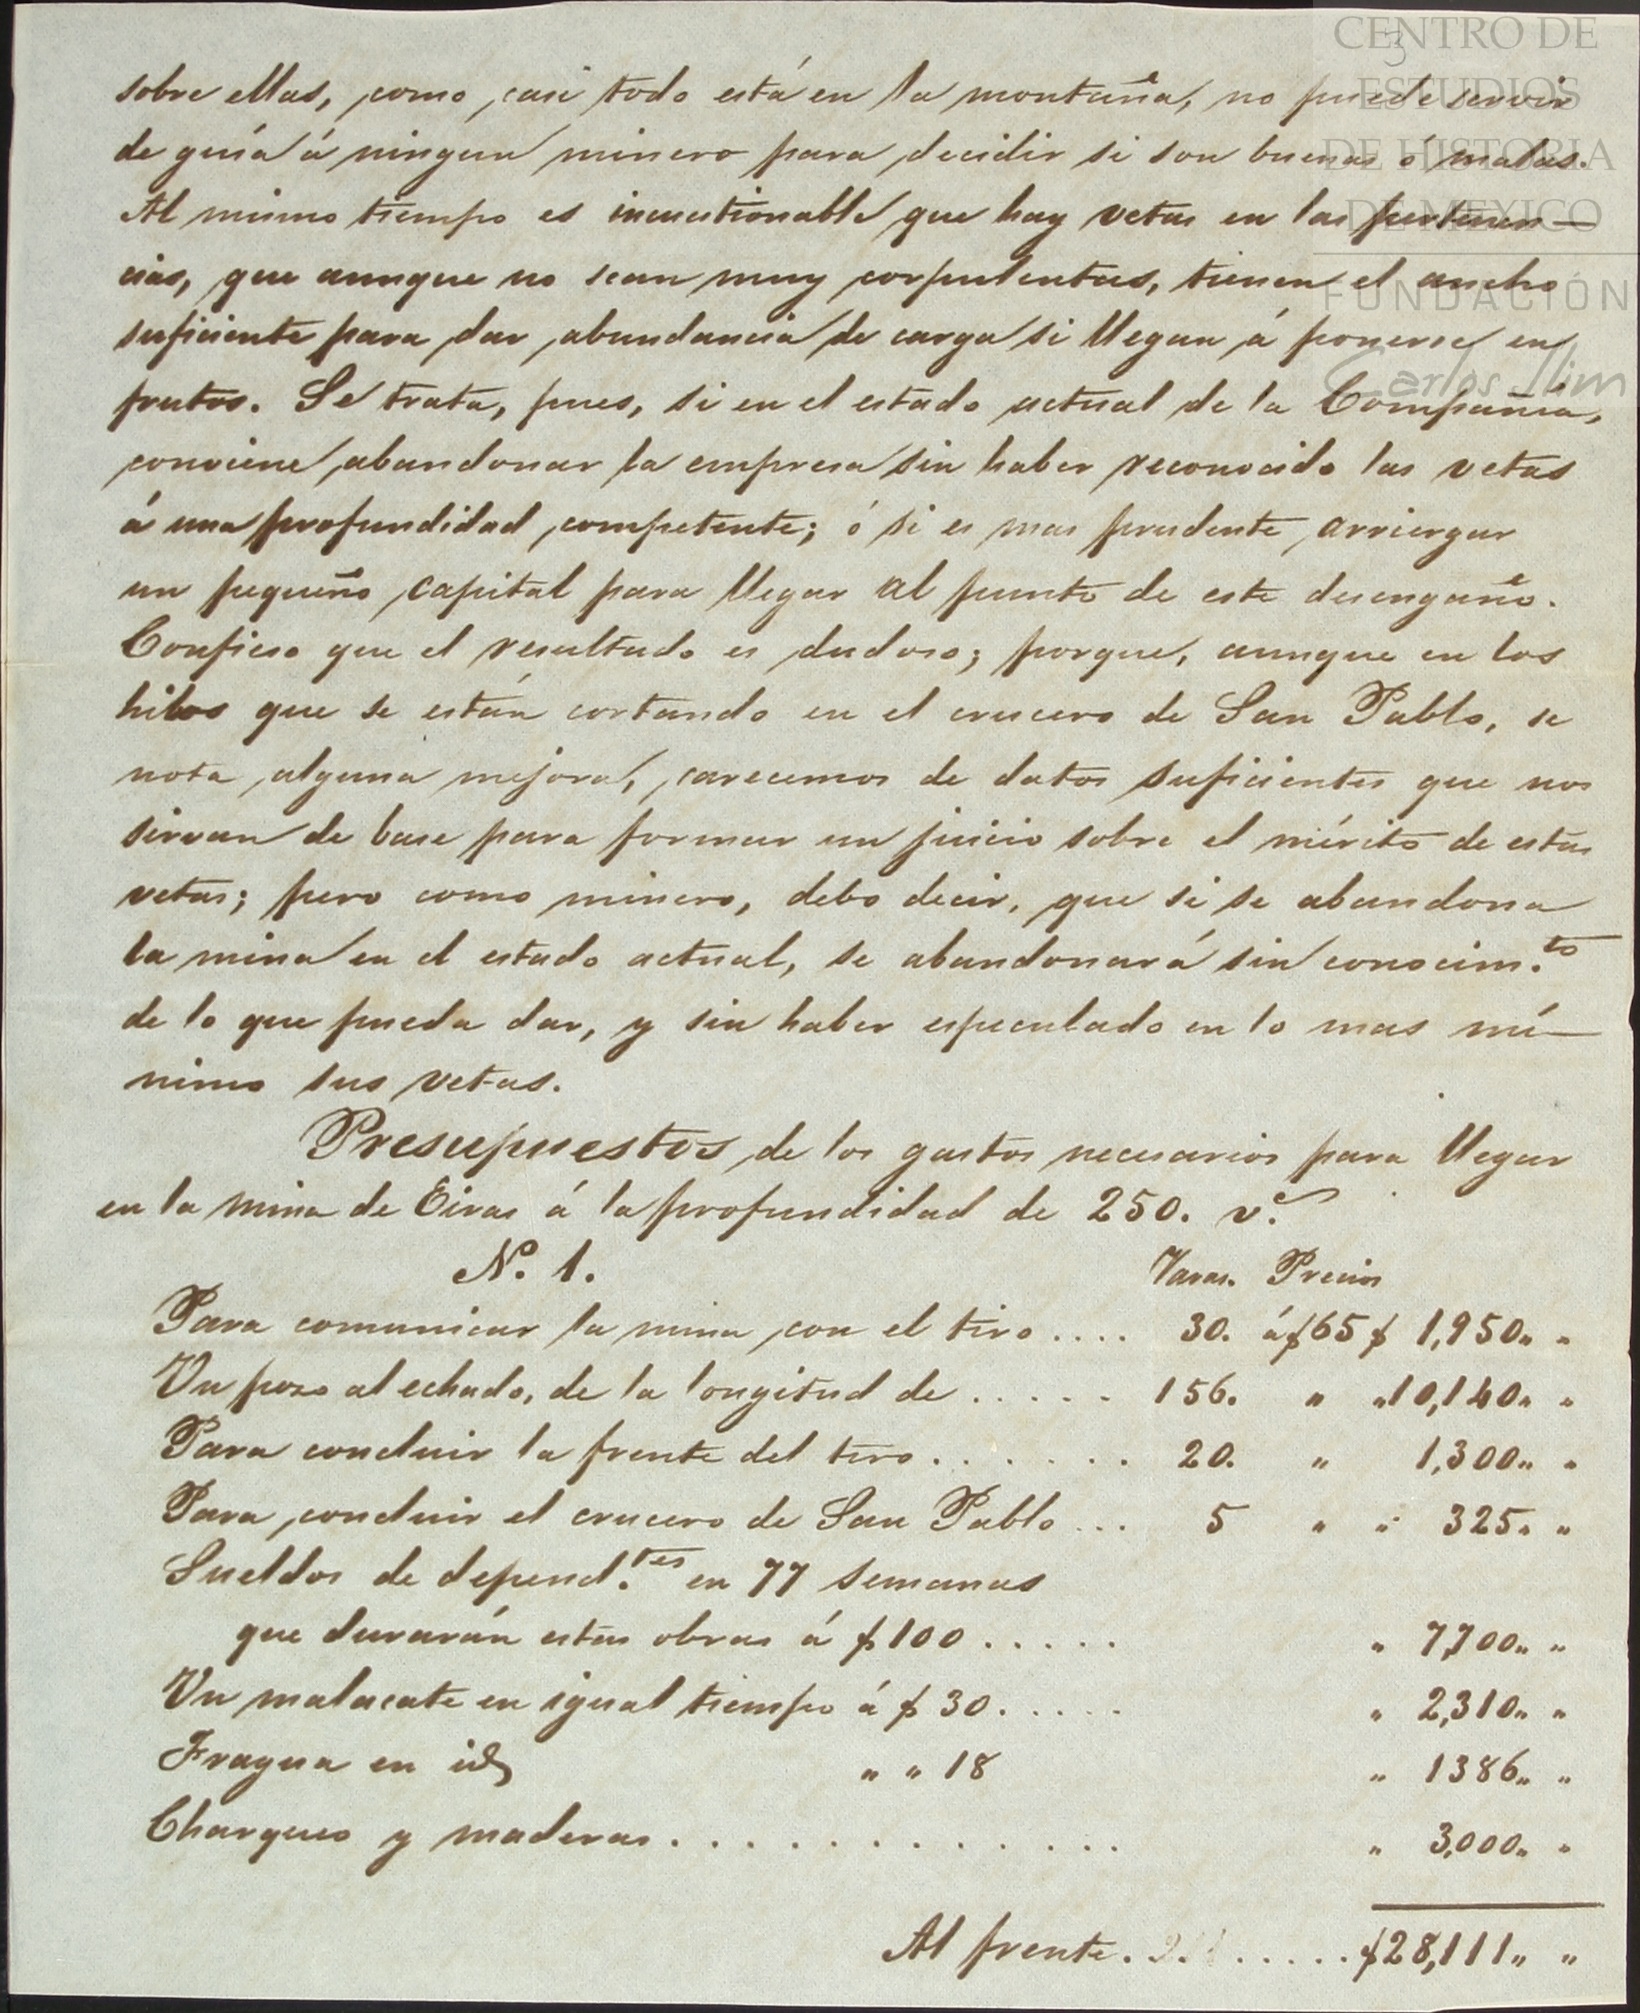 CENTRO DE
ESTUDIOS
DE HISTORIA
DE MÉXICO
FUNDACIÓN
Carlos Slim
3
sobre ellas, como casi todo está en la montaña, no puede servir
de guía á ningun minero para decidir si son buenas ó malas.
Al mismo tiempo es incuestionable que hay vetas en las pertenen—
cias, que aunque no sean muy corpulentas, tienen el ancho
suficiente para dar abundancia de carga si llegan á ponerse en
frutos. Se trata, pues, si en el estado actual de la Compañia,
conviene abandonar la empresa sin haber reconocido las vetas
á una profundidad competente; ó si es mas prudente arriesgar
un pequeño capital para llegar al punto de este desengaño.
Confieso que el resultado es dudoso; porque, aunque en los
hilos que se están cortando en el crucero de San Pablo, se
nota alguna mejora, carecemos de datos suficientes que nos
sirvan de base para formar un juicio sobre el mérito de estas
vetas; pero como minero, debo decir, que si se abandona
la mina en el estado actual, se abandonará sin conocim.to
de lo que pueda dar, y sin haber especulado en lo mas mí—
nimo sus vetas.
Presupuestos de los gastos necesarios para llegar
en la mina de Eivas á la profundidad de 250. v.s
No. 1. Varas. Precios
Para comunicar la mina con el tiro .... 30. á $65 $ 1,950,, ,,
Un pozo al echado, de la longitud de ..... 156. " " 10,140,, ,,
Para concluir la frente del tiro ....... 20. " 1,300,, ,,
Para concluir el crucero de San Pablo ... 5 " " 325,, ,,
Sueldos de depend.tes en 77 semanas
que durarán estas obras á $100 ..... " 7,700,, ,,
Un malacate en igual tiempo á $ 30 ..... " 2,310,, ,,
Fragua en id " " 18 " 1386,, ,,
Charqueo y maderas .............. " 3,000,, ,,
Al frente ....... $28,111,, ,,